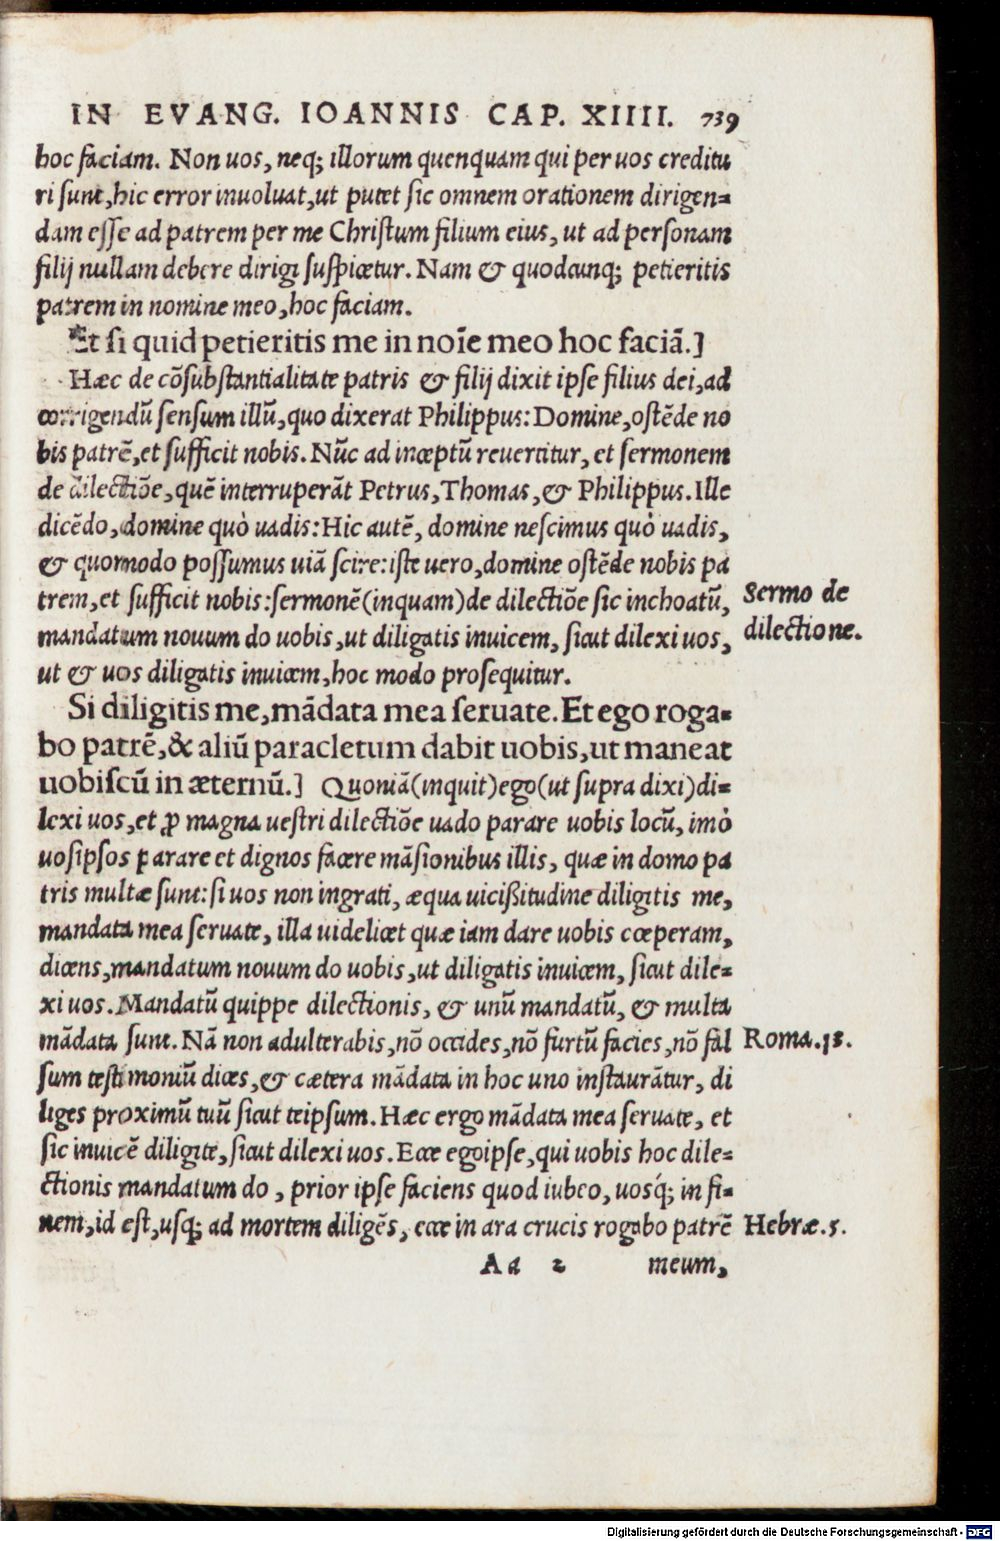 IN EVANG. IOANNIS CAP. XIIII. 739
hoc faciam. Non uos, neq; illorum quenquam qui per uos creditu
ri sunt, hic error inuoluat, ut putet sic omnem orationem dirigen=
dam esse ad patrem per me Christum filium eius, ut ad personam
filij nullam debere dirigi suspicetur. Nam & quodcunq; petieritis
patrem in nomine meo, hoc faciam.
Et si quid petieritis me in noīe meo hoc faciā.]
Hæc de cōsubstantialitate patris & filij dixit ipse filius dei, ad
corrigendū sensum illū, quo dixerat Philippus: Domine, ostēde no
bis patrē, et sufficit nobis. Nūc ad inceptū reuertitur, et sermonem
de dilectiōe, quē interruperāt Petrus, Thomas, & Philippus. Ille
dicēdo, domine quò uadis: Hic autē, domine nescimus quò uadis,
& quomodo possumus uiā scire: iste uero, domine ostēde nobis pa
trem, et sufficit nobis: sermonē (inquam) de dilectiōe sic inchoatū,
Sermo de
dilectione.
mandatum nouum do uobis, ut diligatis inuicem, sicut dilexi uos,
ut & uos diligatis inuicem, hoc modo prosequitur.
Si diligitis me, mādata mea seruate. Et ego roga=
bo patrē, & aliū paracletum dabit uobis, ut maneat
uobiscū in æternū.] Quoniā (inquit) ego (ut supra dixi) di=
lexi uos, et ꝓ magna uestri dilectiōe uado parare uobis locū, imò
uosipsos parare et dignos facere māsionibus illis, quæ in domo pa
tris multæ sunt: si uos non ingrati, æqua uicißitudine diligitis me,
mandata mea seruate, illa uidelicet quæ iam dare uobis cœperam,
dicens, mandatum nouum do uobis, ut diligatis inuicem, sicut dile=
xi uos. Mandatū quippe dilectionis, & unū mandatū, & multa
mādata sunt. Nā non adulterabis, nō occides, nō furtū facies, nō fal
Roma.13.
sum testimoniū dices, & cætera mādata in hoc uno instaurātur, di
liges proximū tuū sicut teipsum. Hæc ergo mādata mea seruate, et
sic inuicē diligite, sicut dilexi uos. Ecce egoipse, qui uobis hoc dile=
ctionis mandatum do, prior ipse faciens quod iubeo, uosq́; in fi=
nem, id est, usq; ad mortem diligēs, ecce in ara crucis rogabo patrē
Hebræ.5.
Aa 2 meum,
Digitalisierung gefördert durch die Deutsche Forschungsgemeinschaft - DFG